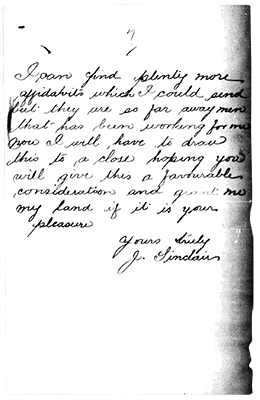 7
I can find plenty more
affidavits which I could send
but they are so far away men
that has been working for me
now I will have to draw
this to a close hoping you
will give this a favourable
consideration and grant me
my land if it is your
pleasure
Yours truly
J. Sinclair